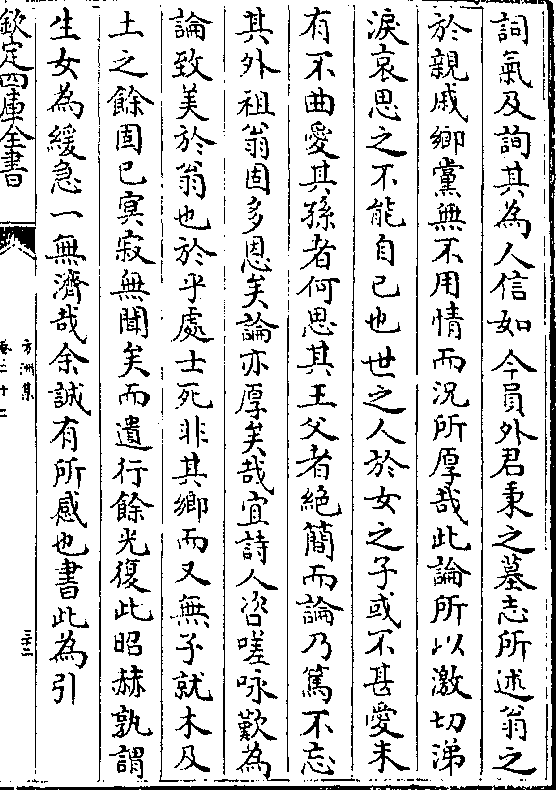 詞氣及詢其為人信如今員外君秉之墓志所述翁之
於親戚鄉黨無不用情而況所厚哉此論所以激切涕
淚哀思之不能自已也世之人於女之子或不甚愛未
有不曲愛其孫者何思其王父者絶簡而論乃篤不忘
其外祖翁固多恩矣論亦厚矣哉宜詩人咨嗟咏歎為
論致美於翁也於乎處士死非其鄉而又無子就木及
土之餘固已寞寂無聞矣而遺行餘光復此昭赫孰謂
生女為緩急一無濟哉余誠有所感也書此為引
欽定四庫全書
方洲集
卷二十二
三十二